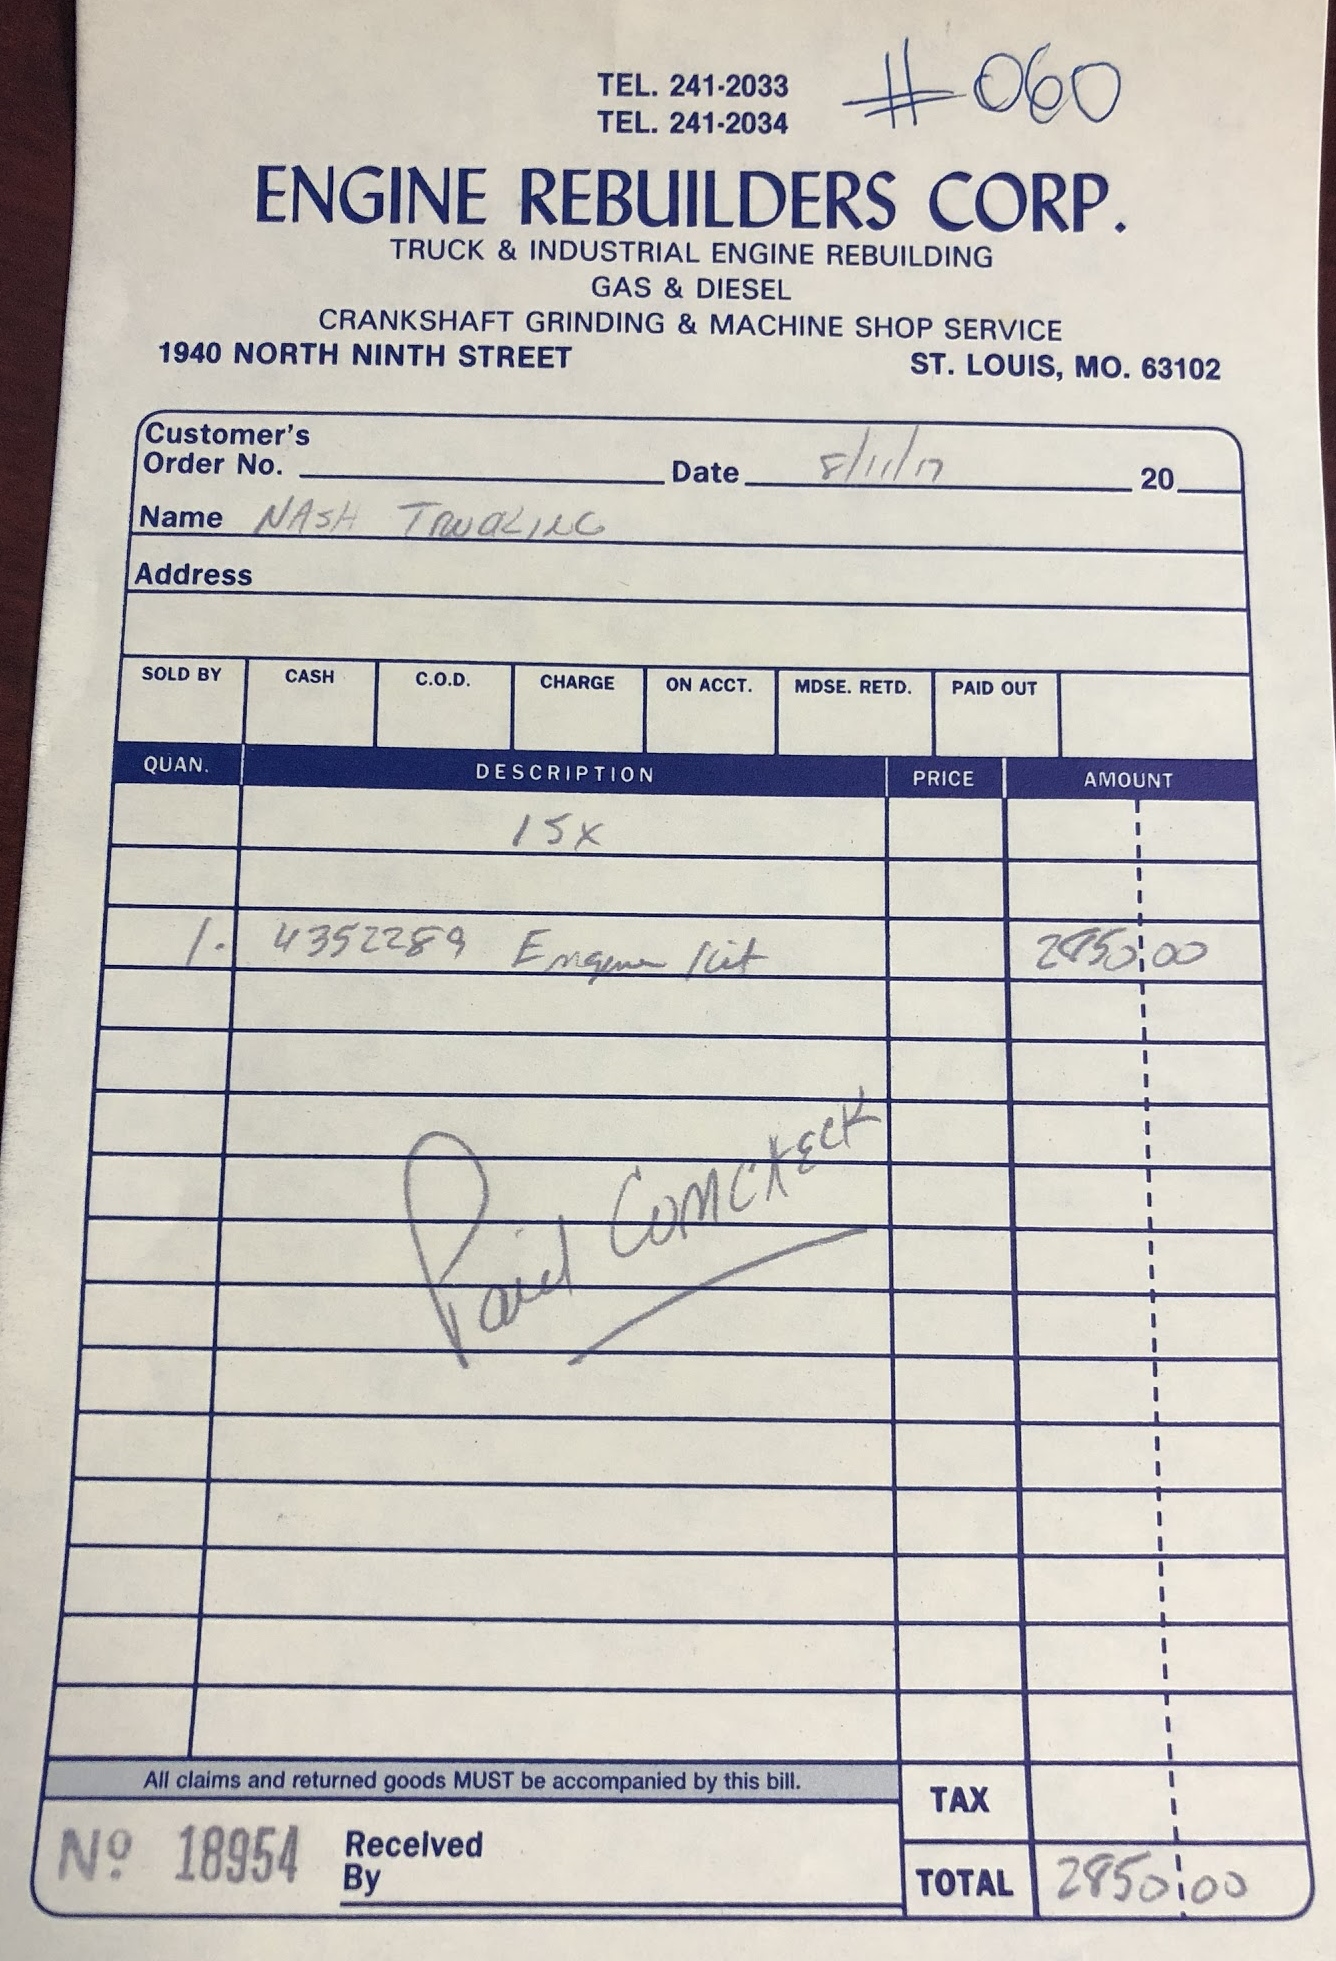 #060
TEL. 241-2033
TEL. 241-2034
ENGINE REBUILDERS CORP.
TRUCK & INDUSTRIAL ENGINE REBUILDING
GAS & DIESEL
CRANKSHAFT GRINDING & MACHINE SHOP SERVICE
1940 NORTH NINTH STREET ST. LOUIS, MO. 63102
Customer's
Order No. Date 8/11/17 20
Name NASH TRUCKING
Address
SOLD BY CASH C.O.D. CHARGE ON ACCT. MDSE. RETD. PAID OUT
QUAN. DESCRIPTION PRICE AMOUNT
15x
1. 4352289 Engine Kit 2850.00
Paid COMCHECK
All claims and returned goods MUST be accompanied by this bill.
TAX
Nº 18954 Received
By
TOTAL 2850.00